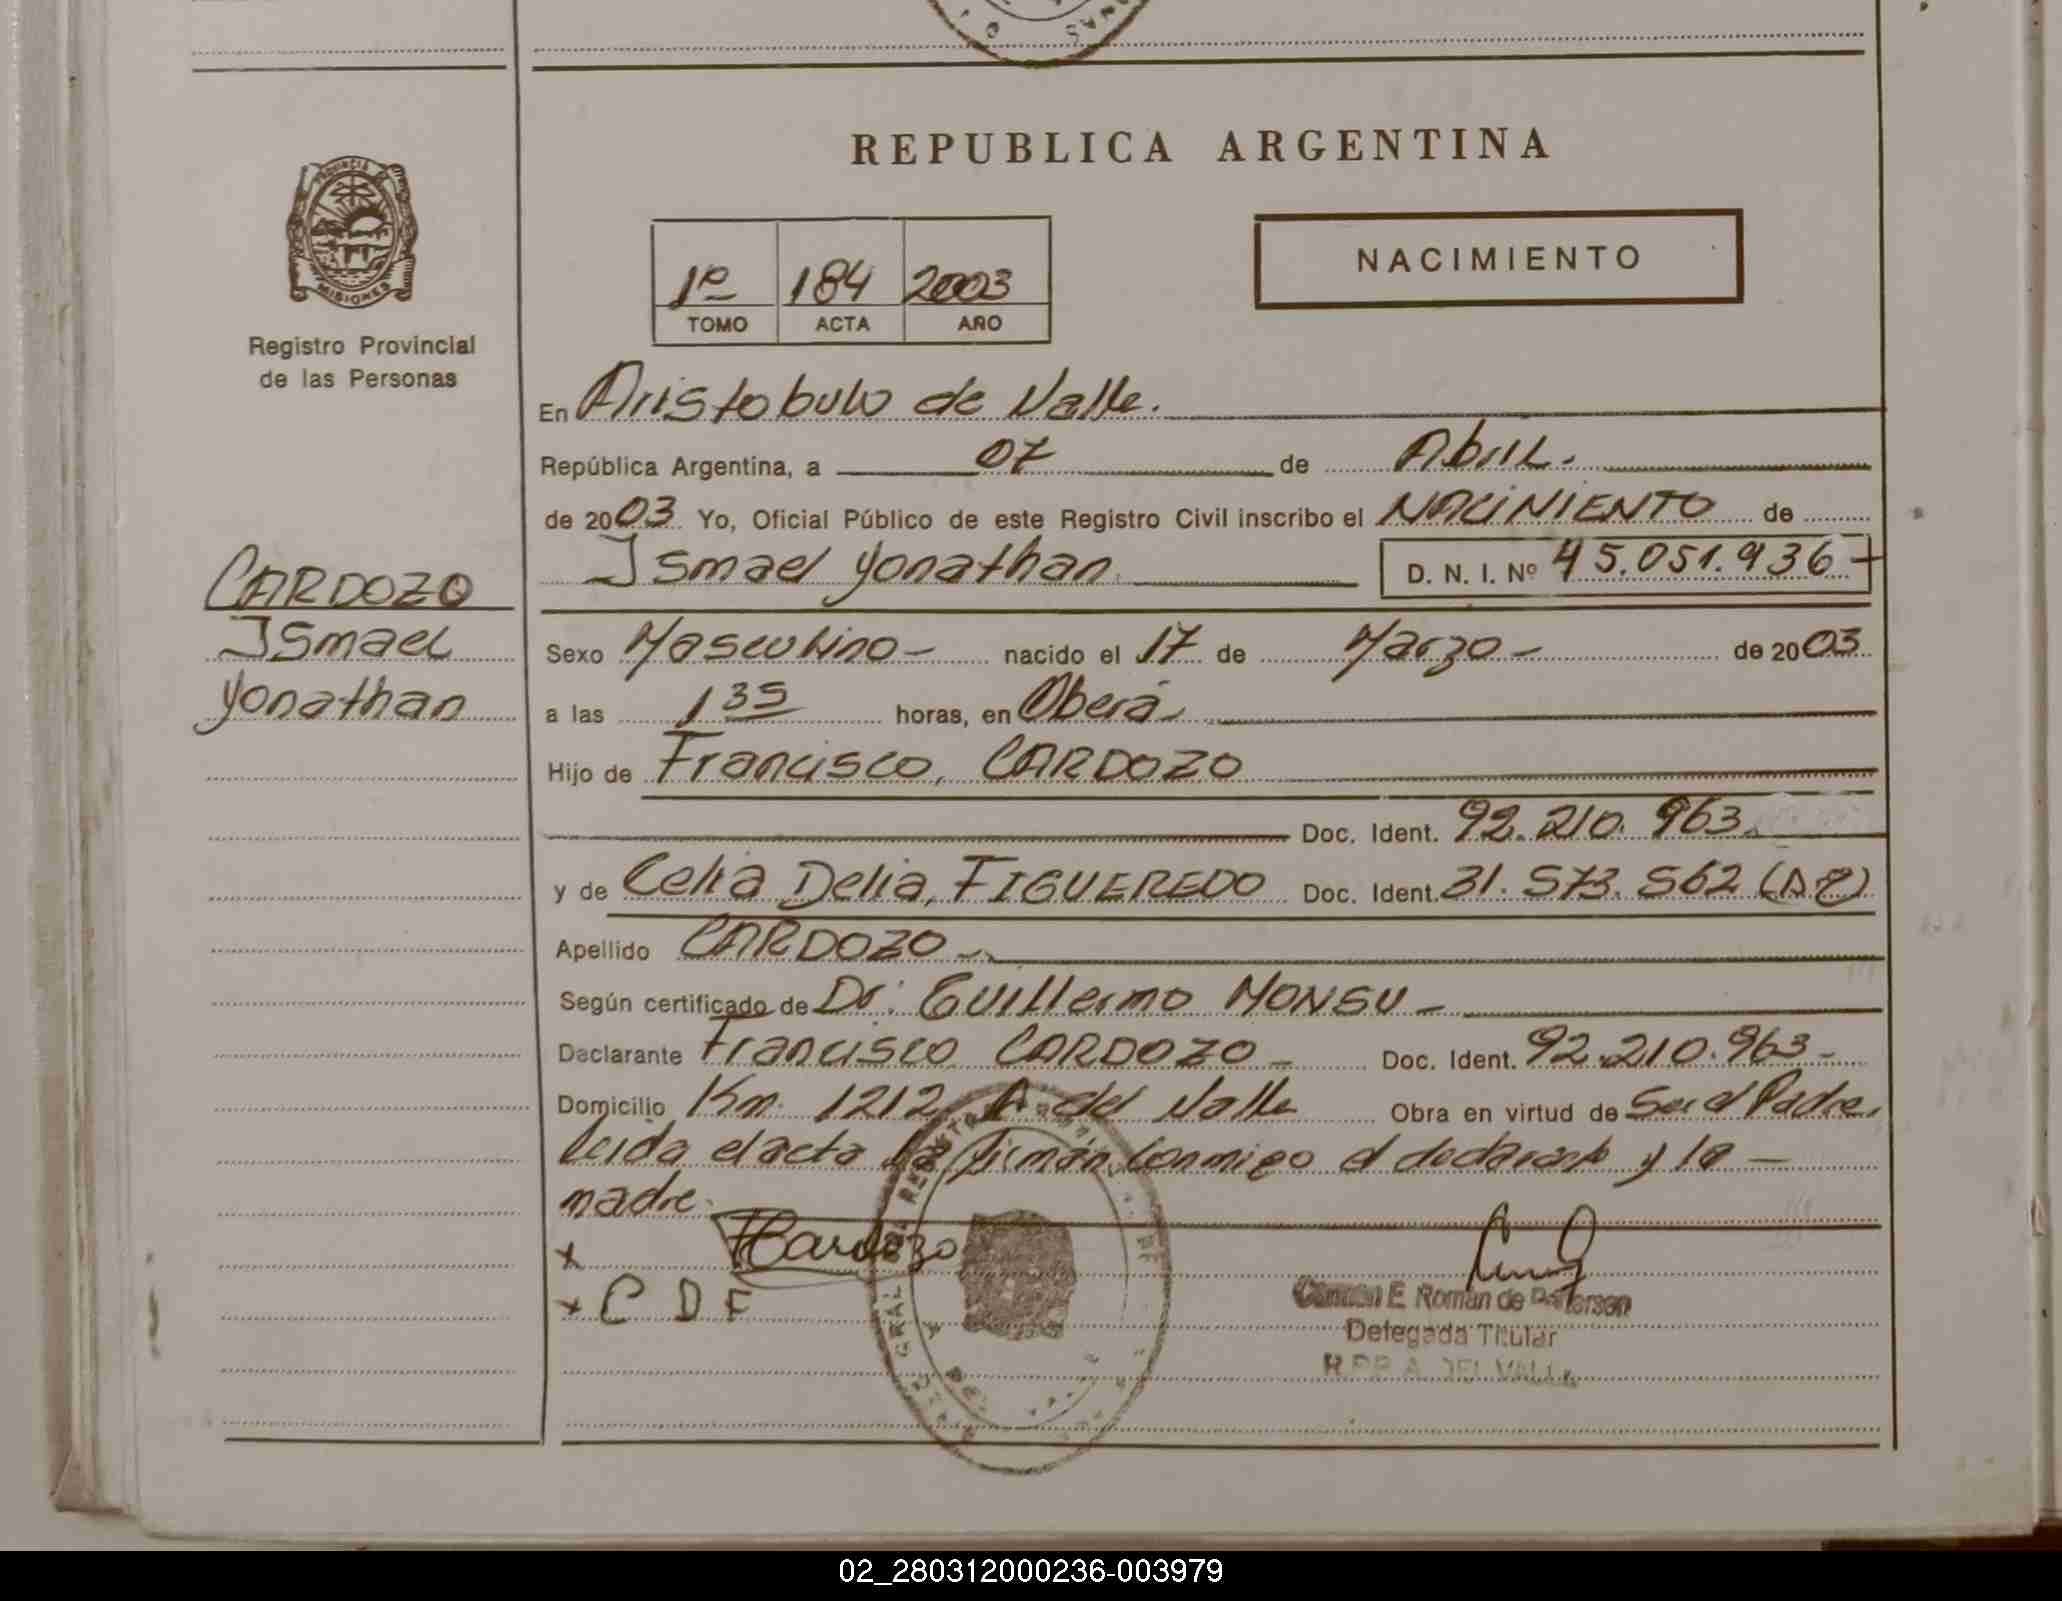 REPUBLICA ARGENTINA
PROVINCIA DE
MISIONES
Registro Provincial
de las Personas
1º 184 2003
TOMO ACTA AÑO
NACIMIENTO
En Aristobulo de Valle.
República Argentina, a 07 de Abril.
de 2003 Yo, Oficial Público de este Registro Civil inscribo el NACIMIENTO de
Ismael Yonathan D. N. I. Nº 45.051.936
CARDOZO
Ismael
Yonathan
Sexo Masculino - nacido el 17 de Marzo - de 2003
a las 1 35 horas, en Oberá
Hijo de Francisco, CARDOZO
Doc. Ident. 92.210.963
y de Celia Delia, FIGUEREDO Doc. Ident. 31.573.562
Apellido CARDOZO
Según certificado de Dr: Guillermo MONSU -
Declarante Francisco CARDOZO - Doc. Ident. 92.210.963 -
Domicilio Km. 1212 A. del Valle Obra en virtud de Ser el Padre,
leida el acta la firmán conmigo el declarante y la -
madre.
x FCardozo
x C D F
E Román de
Delegada Titular
R.P.P. A. DEL VALLE
02_280312000236-003979